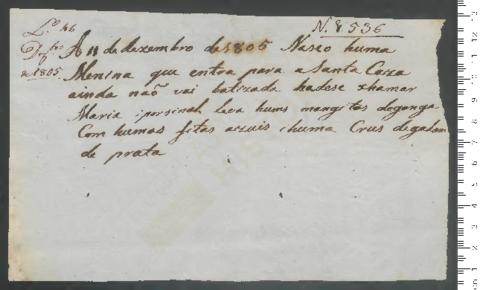 N. 8536
L.º 46
Dezbro
de 1805
A 11 de dezembro de 1805 Náseo huma
Menina que entra para a Santa Caza
ainda naõ vai batizada hadese xhamar
Maria iporsinal leva huns mangitos deganga
Com humas fitas azuis ihuma Crus degalam
de prata